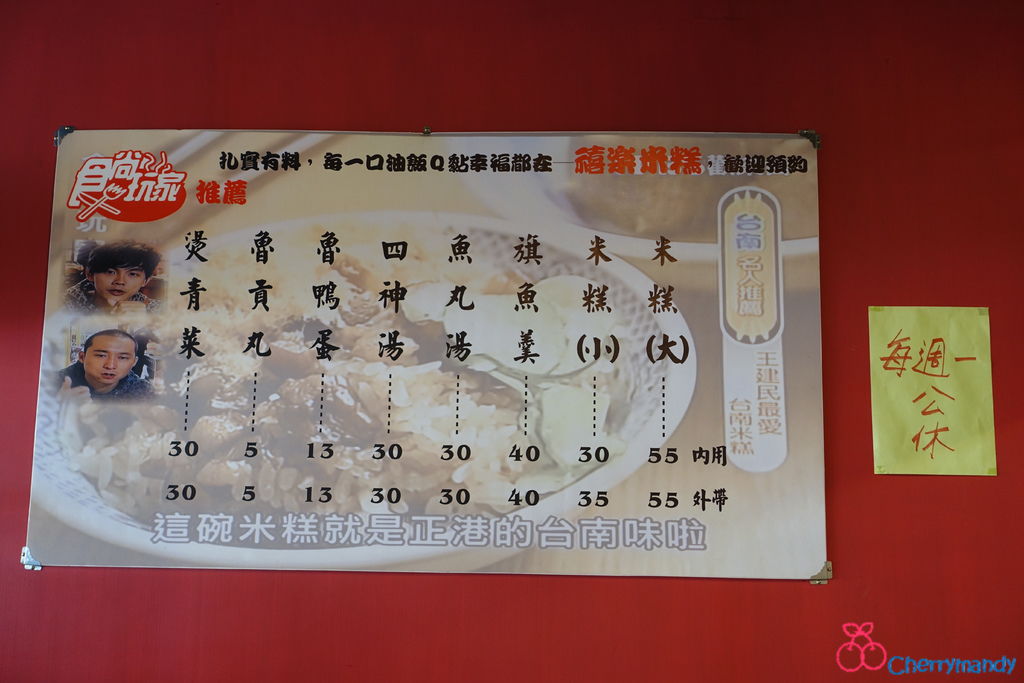 扎實有料，每一口油飯Q黏幸福都在 禧樂米糕，歡迎預約
食尚玩家
推薦
米糕(大) 55 55
米糕(小) 30 35
旗魚羹 40 40
魚丸湯 30 30
四神湯 30 30
魯鴨蛋 13 13
魯貢丸 5 5
燙青菜 30 30
內用
外帶
台南名人推薦
王建民最愛
台南米糕
這碗米糕就是正港的台南味啦
每週一
公休
Cherrymandy